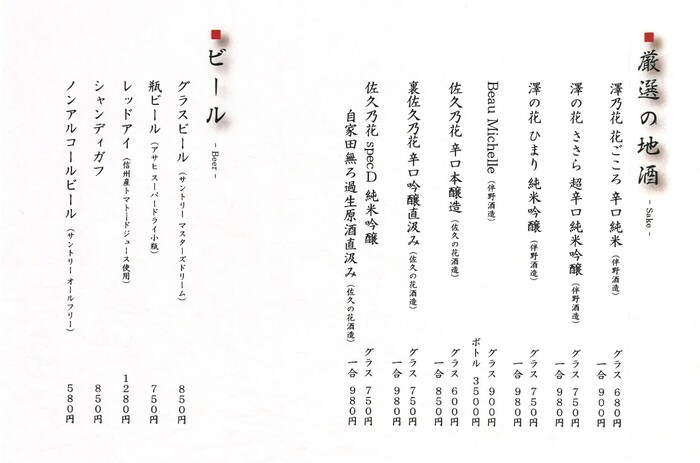 厳選の地酒
- Sake -
澤乃花 花ごころ 辛口純米 (伴野酒造)
グラス 680円
一合 900円
澤の花 ささら 超辛口純米吟醸 (伴野酒造)
グラス 750円
一合 980円
澤の花 ひまり 純米吟醸 (伴野酒造)
グラス 750円
一合 980円
Beau Michelle (伴野酒造)
グラス 900円
ボトル 3500円
佐久乃花 辛口本醸造 (佐久の花酒造)
グラス 600円
一合 850円
裏佐久乃花 辛口吟醸直汲み (佐久の花酒造)
グラス 750円
一合 980円
佐久乃花 spec D 純米吟醸
自家田無ろ過生原酒直汲み (佐久の花酒造)
グラス 750円
一合 980円
ビール
- Beer -
グラスビール (サントリー マスターズドリーム)
850円
瓶ビール (アサヒ スーパードライ小瓶)
750円
レッドアイ (信州産トマトードジュース使用)
1280円
シャンディガフ
850円
ノンアルコールビール (サントリー オールフリー)
580円